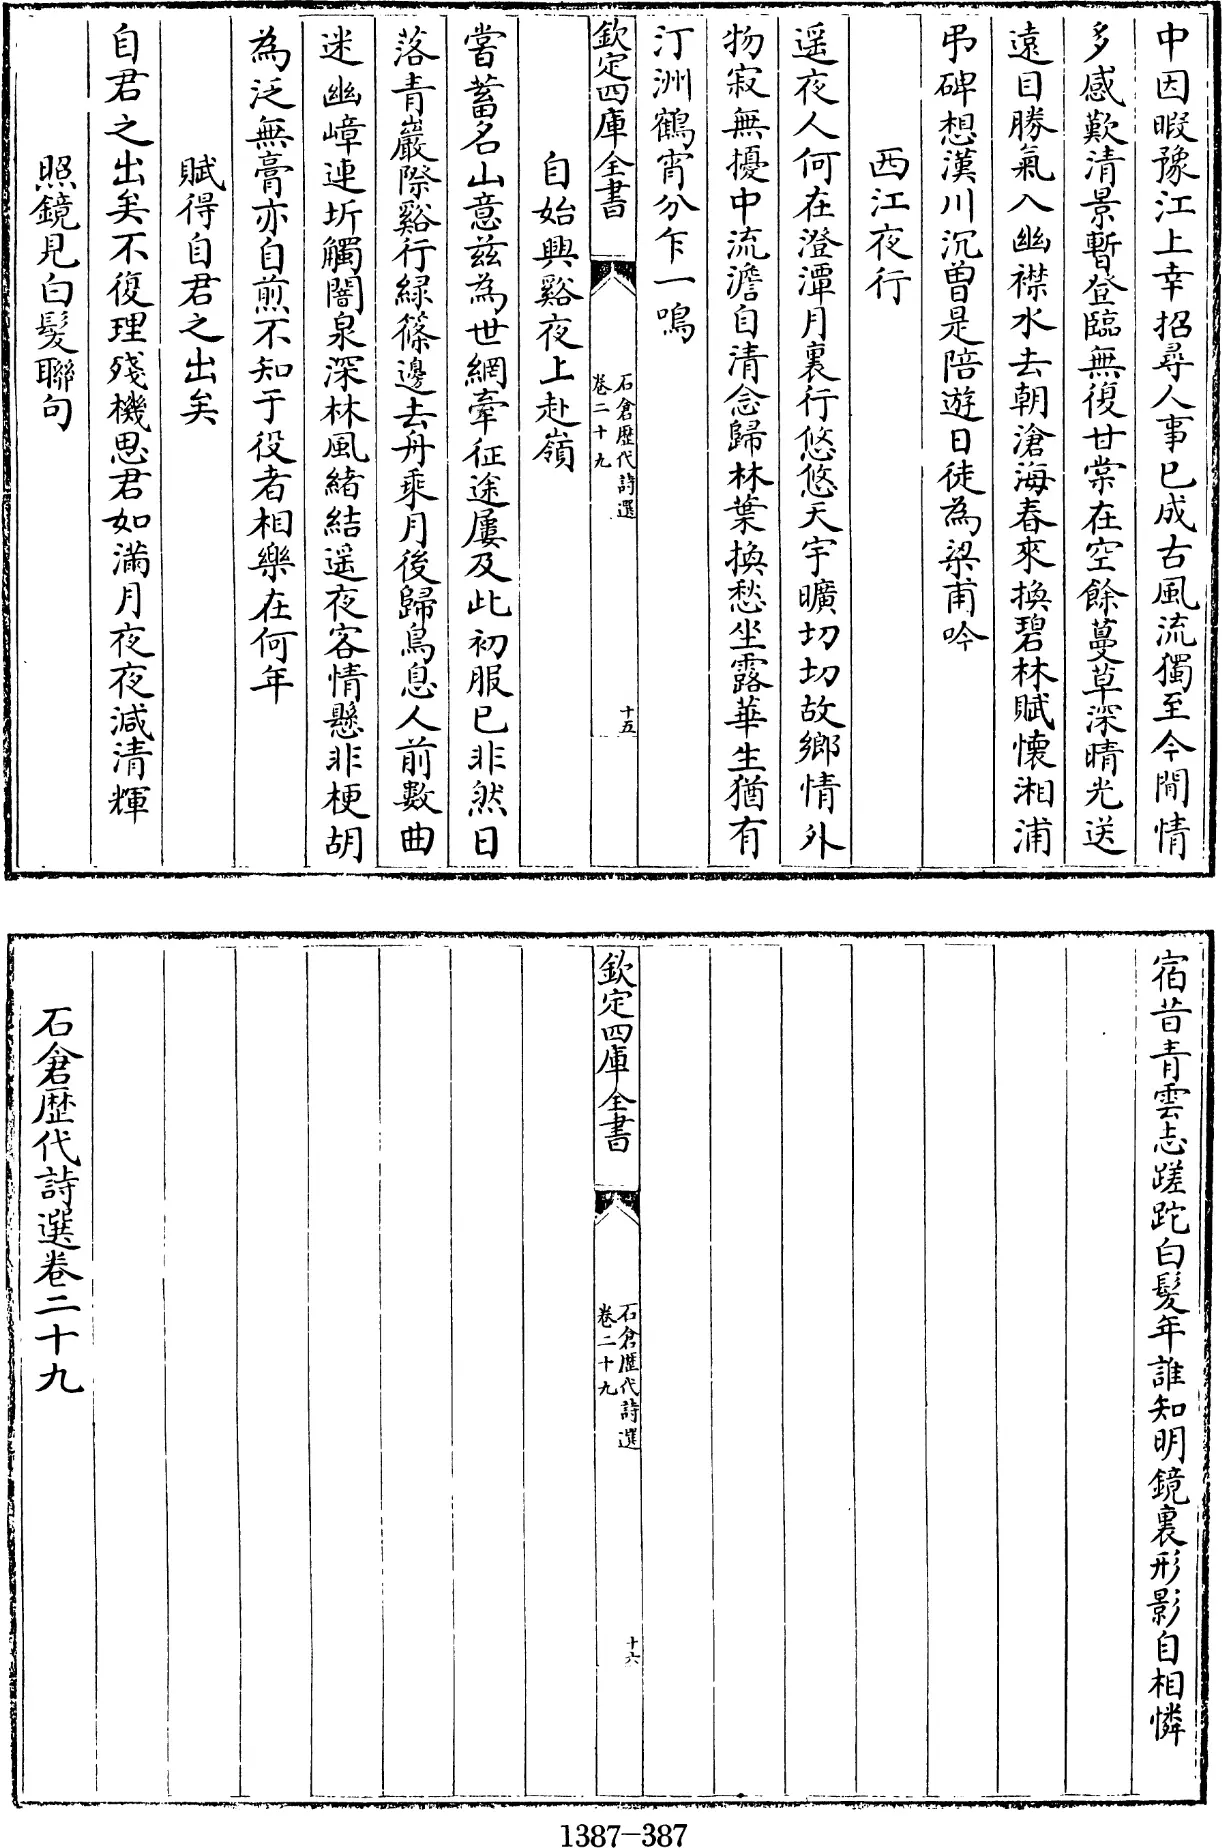 中因暇豫江上幸招尋人事已成古風流獨至今閒情
多感歎清景暫登臨無復甘棠在空餘蔓草深晴光送
遠目勝氣入幽襟水去朝滄海春來換碧林賦懷湘浦
弔碑想漢川沉曽是陪遊日徒為梁甫吟
西江夜行
遥夜人何在澄潭月裏行悠悠天宇曠切切故鄉情外
物寂無擾中流澹自清念歸林葉換愁坐露華生猶有
汀洲鶴宵分乍一鳴
欽定四庫全書
石倉歷代詩選
卷二十九
十五
自始興谿夜上赴嶺
嘗蓄名山意兹為世網牽征途屢及此初服已非然日
落青巖際谿行緑篠邊去舟乘月後歸鳥息人前數曲
迷幽嶂連圻觸闇泉深林風緒結遥夜客情懸非梗胡
為泛無膏亦自煎不知于役者相樂在何年
賦得自君之出矣
自君之出矣不復理殘機思君如滿月夜夜減清輝
照鏡見白髮聯句
宿昔青雲志蹉跎白髮年誰知明鏡裏形影自相憐
欽定四庫全書
石倉歷代詩選
卷二十九
十六
石倉歷代詩選卷二十九
1387-387